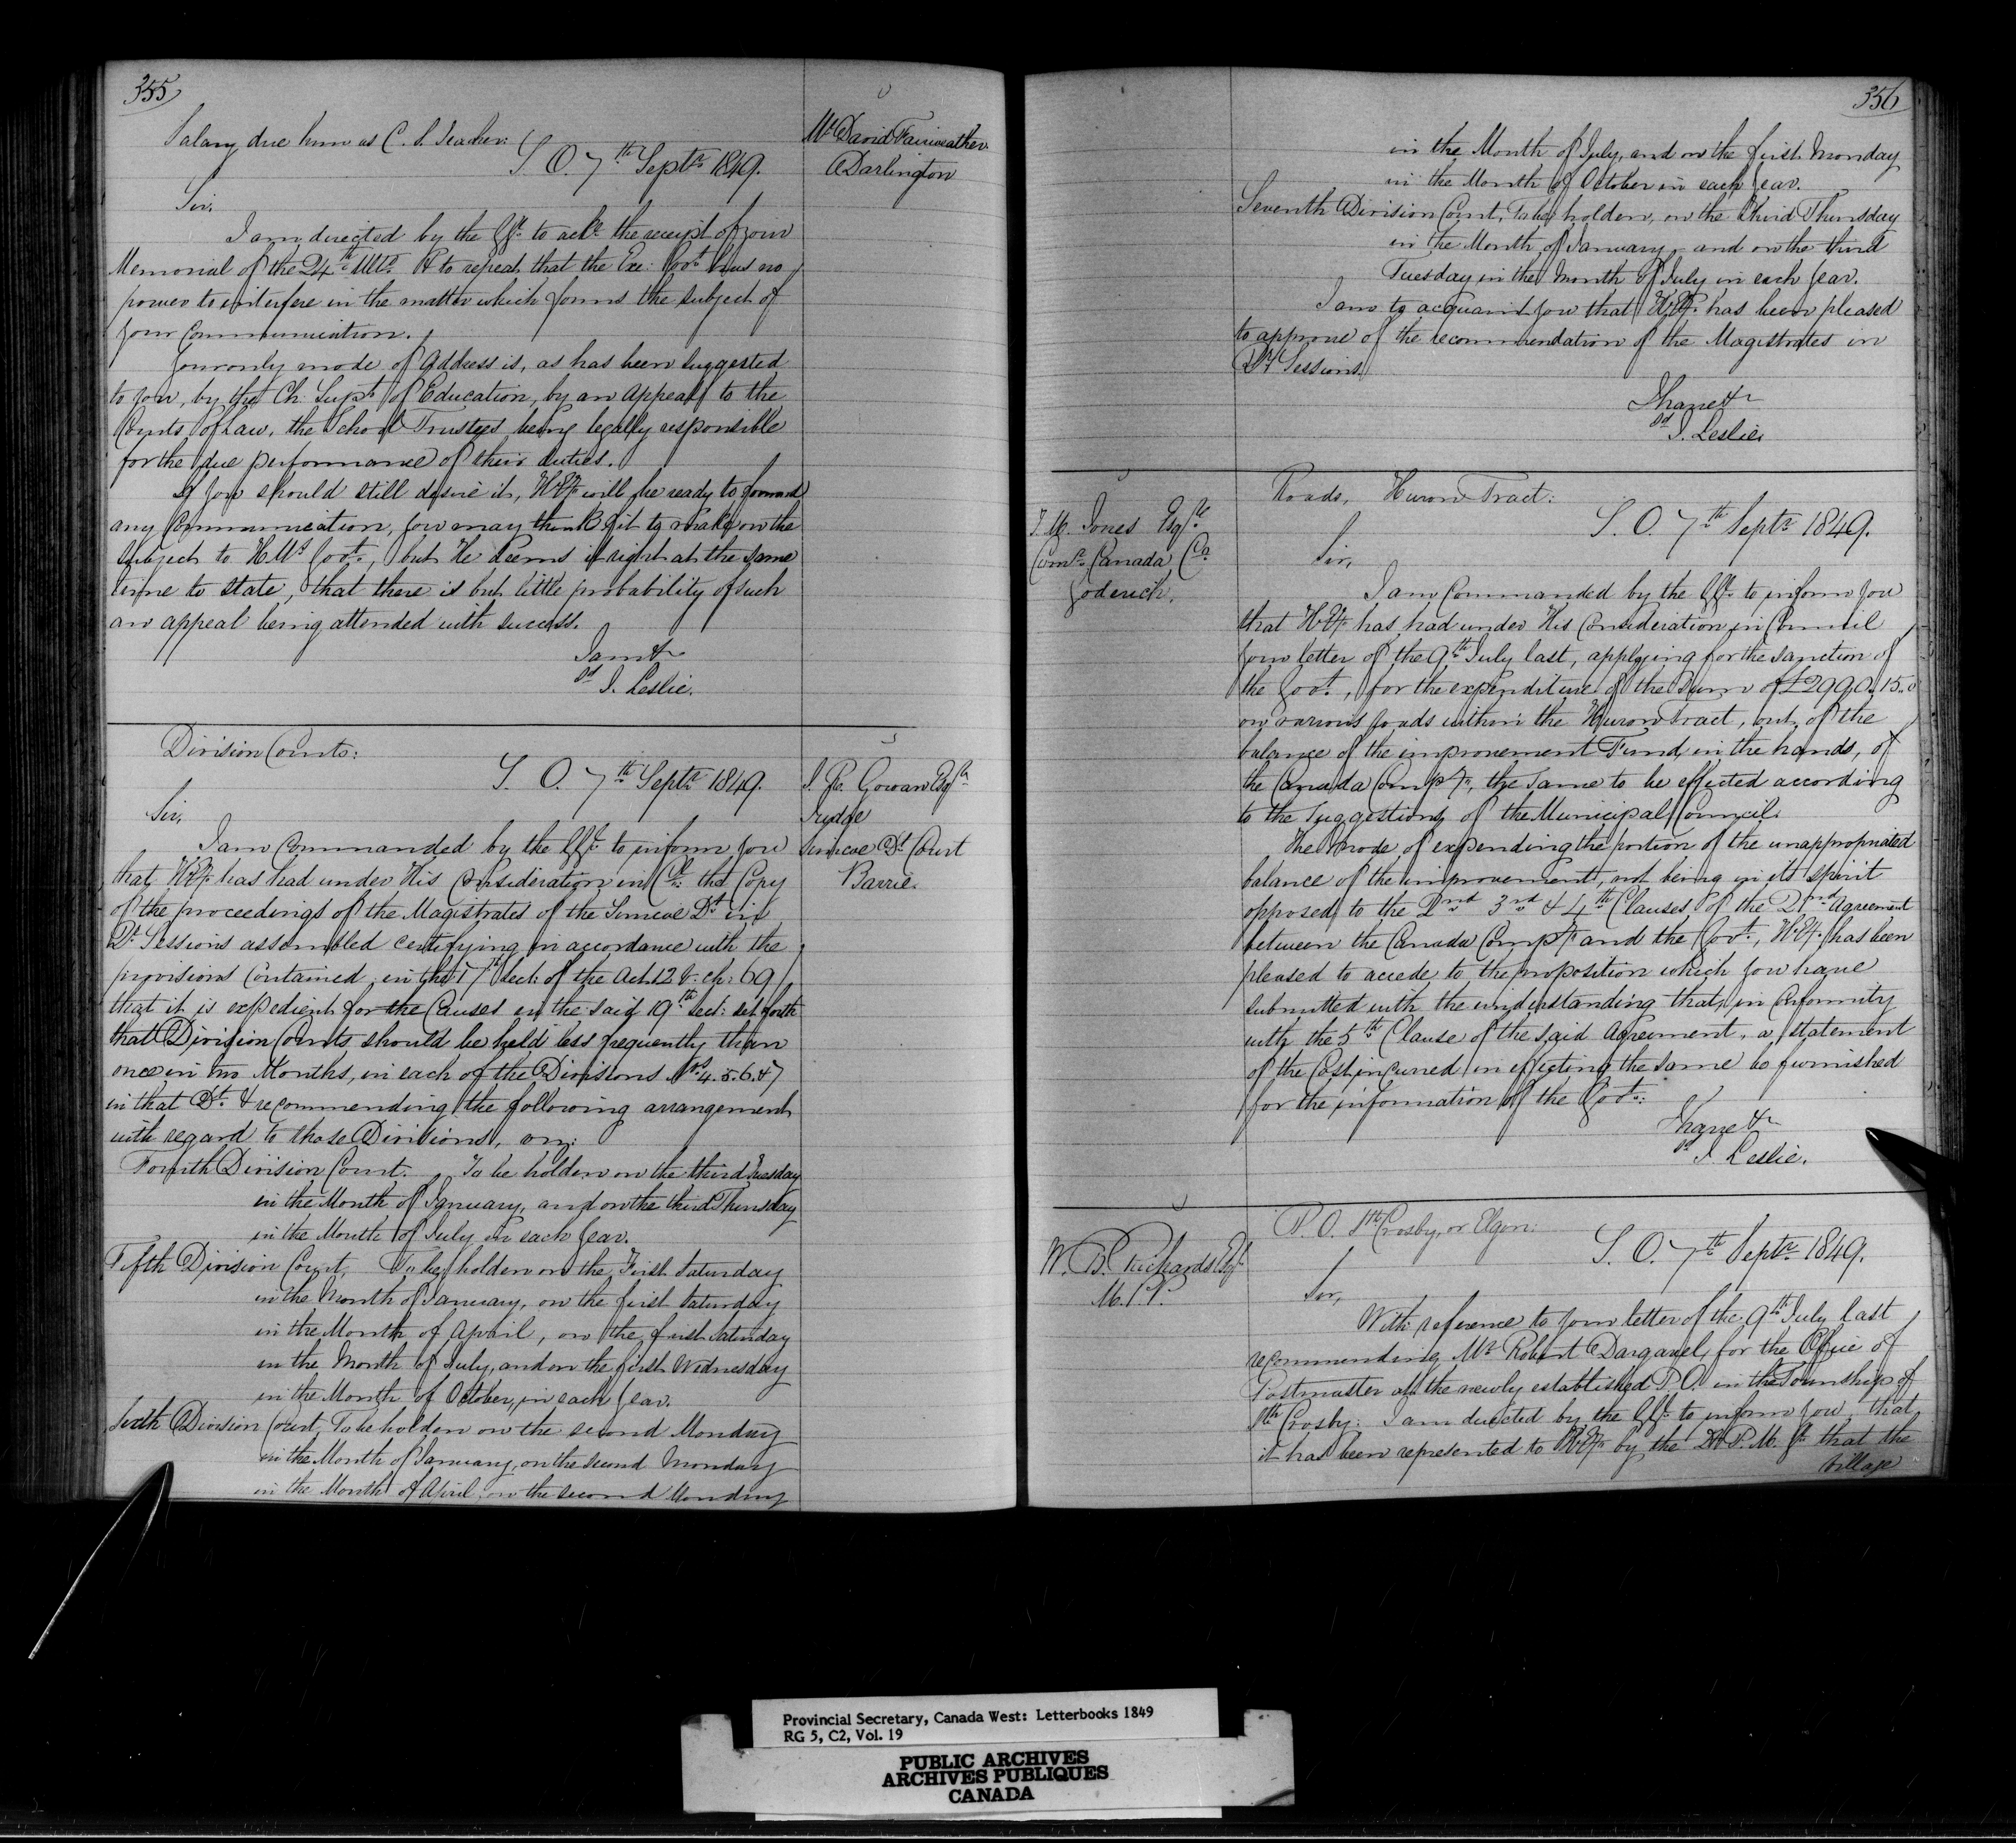 355
Salary due him as C. S. Teacher:
S. O. 7th Septr 1849.
Mr David Fairweather
Darlington
Sir,
I am directed by the GGl to ackn the receipt of your
Memorial of the 24th Ulto & to repeat that the Exe: Govt has no
power to interfere in the matter which forms the subject of
your Communication.
Your only mode of Address is, as has been suggested
to you, by the Ch: Supt of Education, by an Appeal to the
Courts of Law, the School Trustees being legally responsible
for the due performance of their duties.
If you should still desire it, H.Ey will be ready to forward
any Communication, you may think fit to make on the
subject to H.M's Govt, but He deems it right at the same
time to state, that there is but little probability of such
an appeal being attended with success.
I am &c
sd J. Leslie.
Division Courts:
S. O. 7th Septr 1849.
J. R. Gowan Esqre
Judge
Simcoe Dt Court
Barrie.
Sir,
I am Commanded by the GGl to inform you
that H.Ey has had under His Consideration in Cl the Copy
of the proceedings of the Magistrates of the Simcoe Dt in
Qr Sessions assembled certifying in accordance with the
provisions Contained in the 17th sect: of the Act 12 V. ch: 69
that it is expedient for the Causes in the said 19th sect: set forth
that Division Courts should be held less frequently than
once in two Months, in each of the Divisions Nos 4. 5. 6. & 7
in that Dt & recommending the following arrangement
with regard to those Divisions, viz:
Fourth Division Court. To be holden on the third Tuesday
in the Month of January, and on the third Thursday
in the Month of July in each year.
Fifth Division Court, To be holden on the First Saturday
in the Month of January, on the first Saturday
in the Month of April, on the first Saturday
in the Month of July, and on the first Wednesday
in the Month of October, in each year.
Sixth Division Court, To be holden on the second Monday
in the Month of January, on the second Monday
in the Month of April, on the second Monday
356
in the Month of July, and on the first Monday
in the Month of October in each year.
Seventh Division Court, To be holden, on the third Thursday
in the Month of January, and on the third
Tuesday in the Month of July in each year.
I am to acquaint you that H.Ey has been pleased
to approve of the recommendation of the Magistrates in
Qr Sessions.
I have &c
sd J. Leslie.
Roads, Huron Tract:
S. O. 7th Septr 1849.
T. M. Jones Esqre
Comr Canada Co
Goderich.
Sir,
I am Commanded by the GGl to inform you
that H.Ey has had under His Consideration in Council
your letter of the 9th July last, applying for the sanction of
the Govt, for the expenditure of the Sum of £2990. 15. 0
on various roads within the Huron Tract, out of the
balance of the improvement Fund, in the hands, of
the Canada Compy, the same to be effected according
to the Suggestions of the Municipal Council.
The mode of expending the portion of the unappropriated
balance of the improvement, not being in its spirit
opposed to the 2nd 3rd & 4th Clauses of the 2nd Agreement
between the Canada Compy and the Govt, H.Ey has been
pleased to accede to the proposition which you have
submitted with the understanding that, in Conformity
with the 5th Clause of the said Agreement, a statement
of the Cost incurred in effecting the same be furnished
for the information of the Govt.
I have &c
sd J Leslie.
P. O. Sth Crosby, or Elgin:
S. O. 7th Septr 1849.
W. B. Richards Esqr
M.P.P.
Sir,
With reference to your letter of the 9th July last
recommending Mr Robert Dargavel, for the Office of
Postmaster at the newly established P.O. in the Township of
Sth Crosby: I am directed by the GGl to inform you, that
it has been represented to H.Ey by the D.P.M. Gl that the
village
Provincial Secretary, Canada West: Letterbooks 1849
RG 5, C2, Vol. 19
PUBLIC ARCHIVES
ARCHIVES PUBLIQUES
CANADA